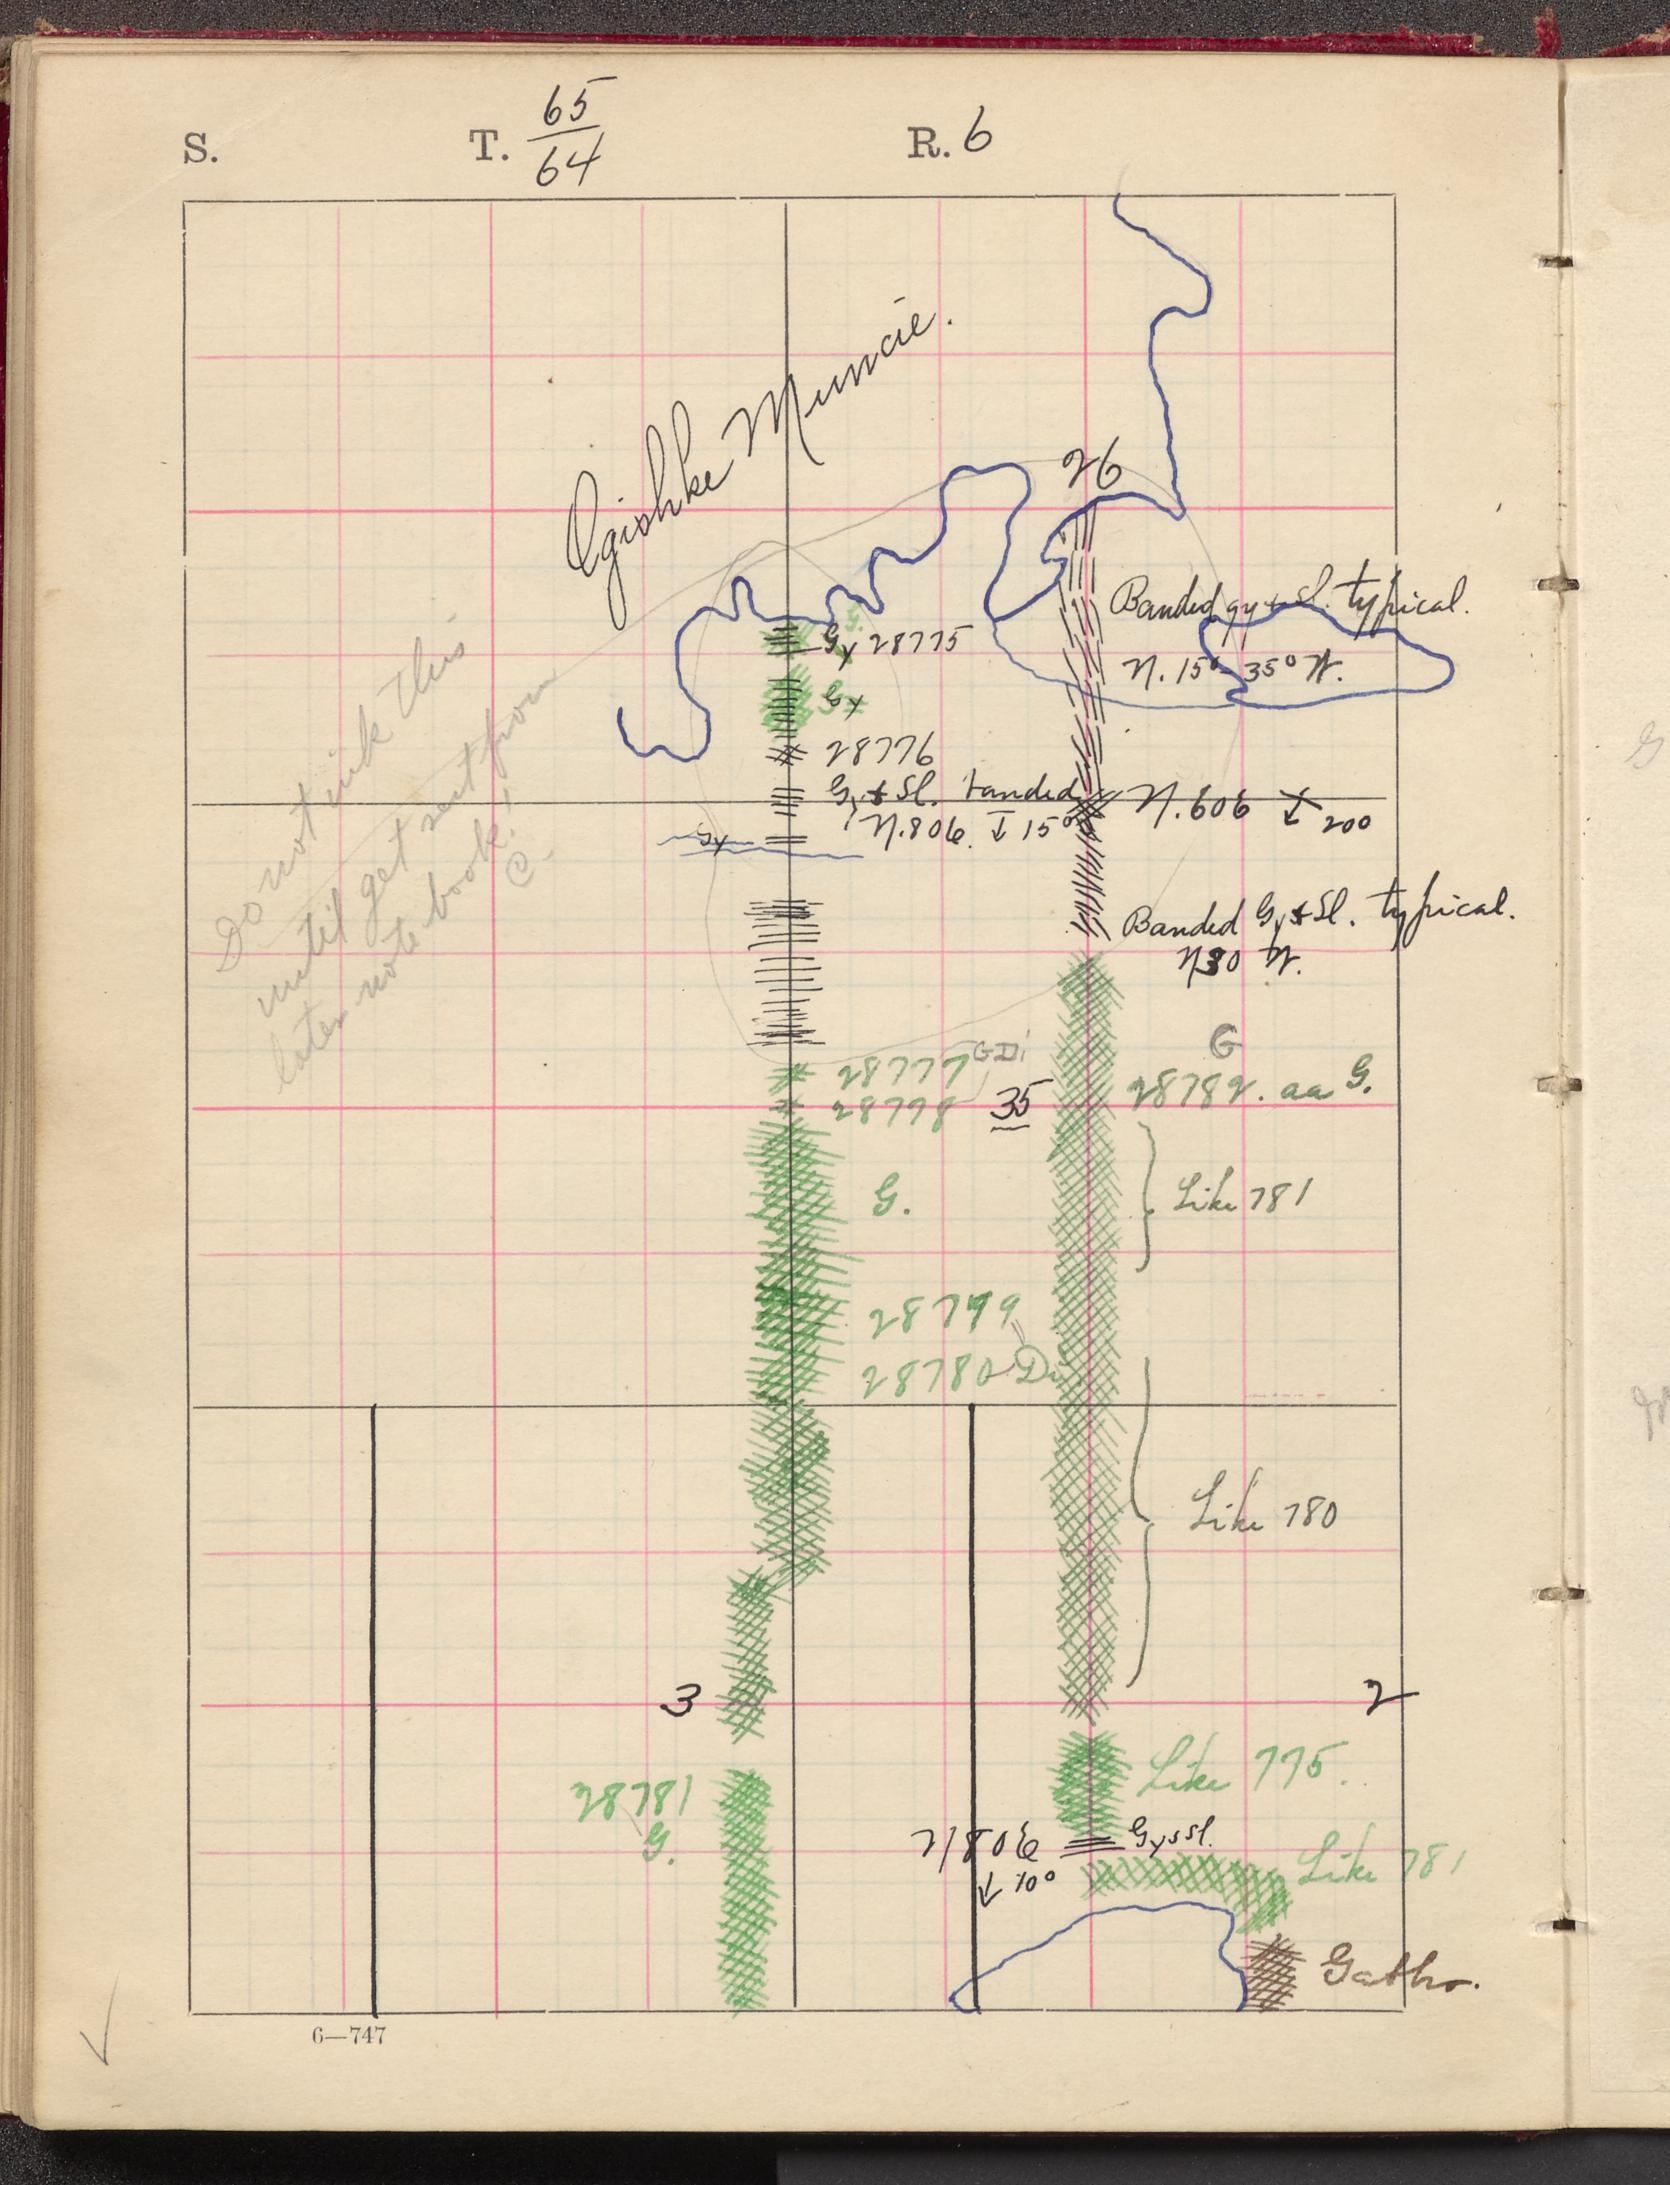 S. T. 65/64 R. 6
Ogishke Muncie.
26
Banded gy & Sl. typical.
N. 15° 35° W.
Gy 28775
Gy
28776
Gy & Sl. banded
N. 80 E. ↓ 15°
N. 60 E ↓ 20°
Gy
Do not ink this
until get sect from
later note book!
C-
Banded Gy & Sl. typical.
N 30 W.
28777 G Di
28778
35
G
28782. aa G.
Like 781
G.
28779
28780 Di
Like 780
3
2
28781
G.
Like 775.
N 80 E
↓ 10°
Gy & Sl.
Like 781
Gabbro.
6—747